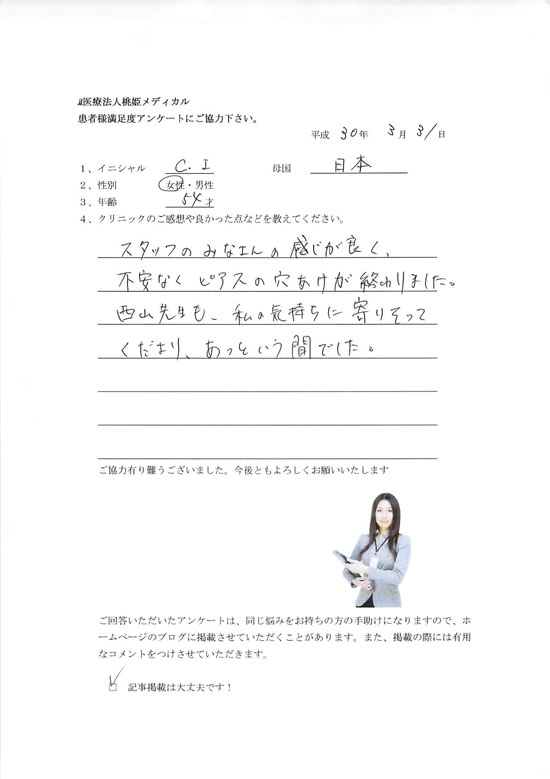 医療法人桃姫メディカル
患者様満足度アンケートにご協力下さい。
平成 30年 3月 31日
1、イニシャル C. I 母国 日本
2、性別 女性・男性
3、年齢 54才
4、クリニックのご感想や良かった点などを教えてください。
スタッフのみなさんの感じが良く、
不安なくピアスの穴あけが終わりました。
西山先生も、私の気持ちに寄りそって
くださり、あっという間でした。
ご協力有り難うございました。今後ともよろしくお願いいたします
ご回答いただいたアンケートは、同じ悩みをお持ちの方の手助けになりますので、ホ
ームページのブログに掲載させていただくことがあります。また、掲載の際には有用
なコメントをつけさせていただきます。
☑ 記事掲載は大丈夫です！